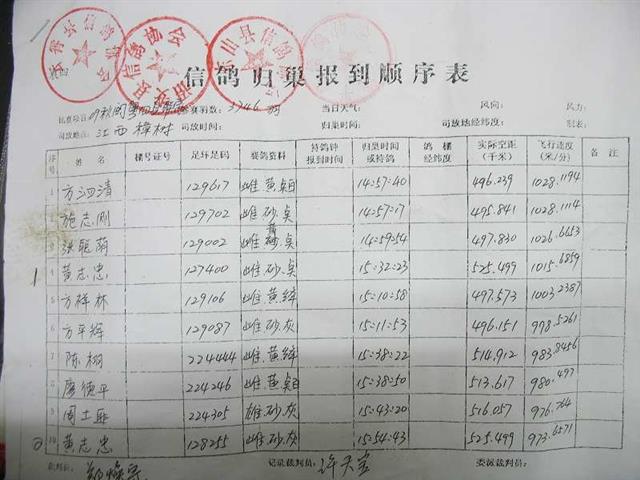 云霄县信鸽协会
县信鸽协会
东山县信鸽
信鸽归巢报到顺序表
比赛项目: 赛羽数: 3746羽 当日天气: 风向: 风力:
司放地点: 江西樟树 司放时间: 归巢时间: 司放地经纬度: 制表:
序号 姓名 棚号证号 足环足码 赛鸽资料 持鸽钟报到时间 归巢时间或持鸽 鸽棚经纬度 实际空距(千米) 飞行速度(米/分) 备注
1 方泗清 129617 雌.黄.䂖 14:57:40 496.239 1028.1194
2 施志刚 129702 雌.砂. 14:57:17 495.841 1028.1114
3 129002 雌.砂. 黄 14:59:54 497.830 1026.6653
1 4 黄志忠 127400 雌.砂. 15:32:23 525.499 1015.6859
5 方梓林 129106 雌.黄. 15:10:58 497.573 1003.2387
6 方平辉 129087 雌.砂.灰 15:11:53 496.151 998.5261
7 陈栩 224444 雌.黄. 15:38:22 514.912 983.8456
8 廖德平 224246 雌.黄. 15:38:50 513.617 980.497
9 周士 224305 雄.砂.灰 15:43:20 516.057 976.764
2 10 黄志忠 128255 雌.砂.灰 15:54:43 525.499 973.6571
裁判长: 记录裁判员: 许天宝 委派裁判员: